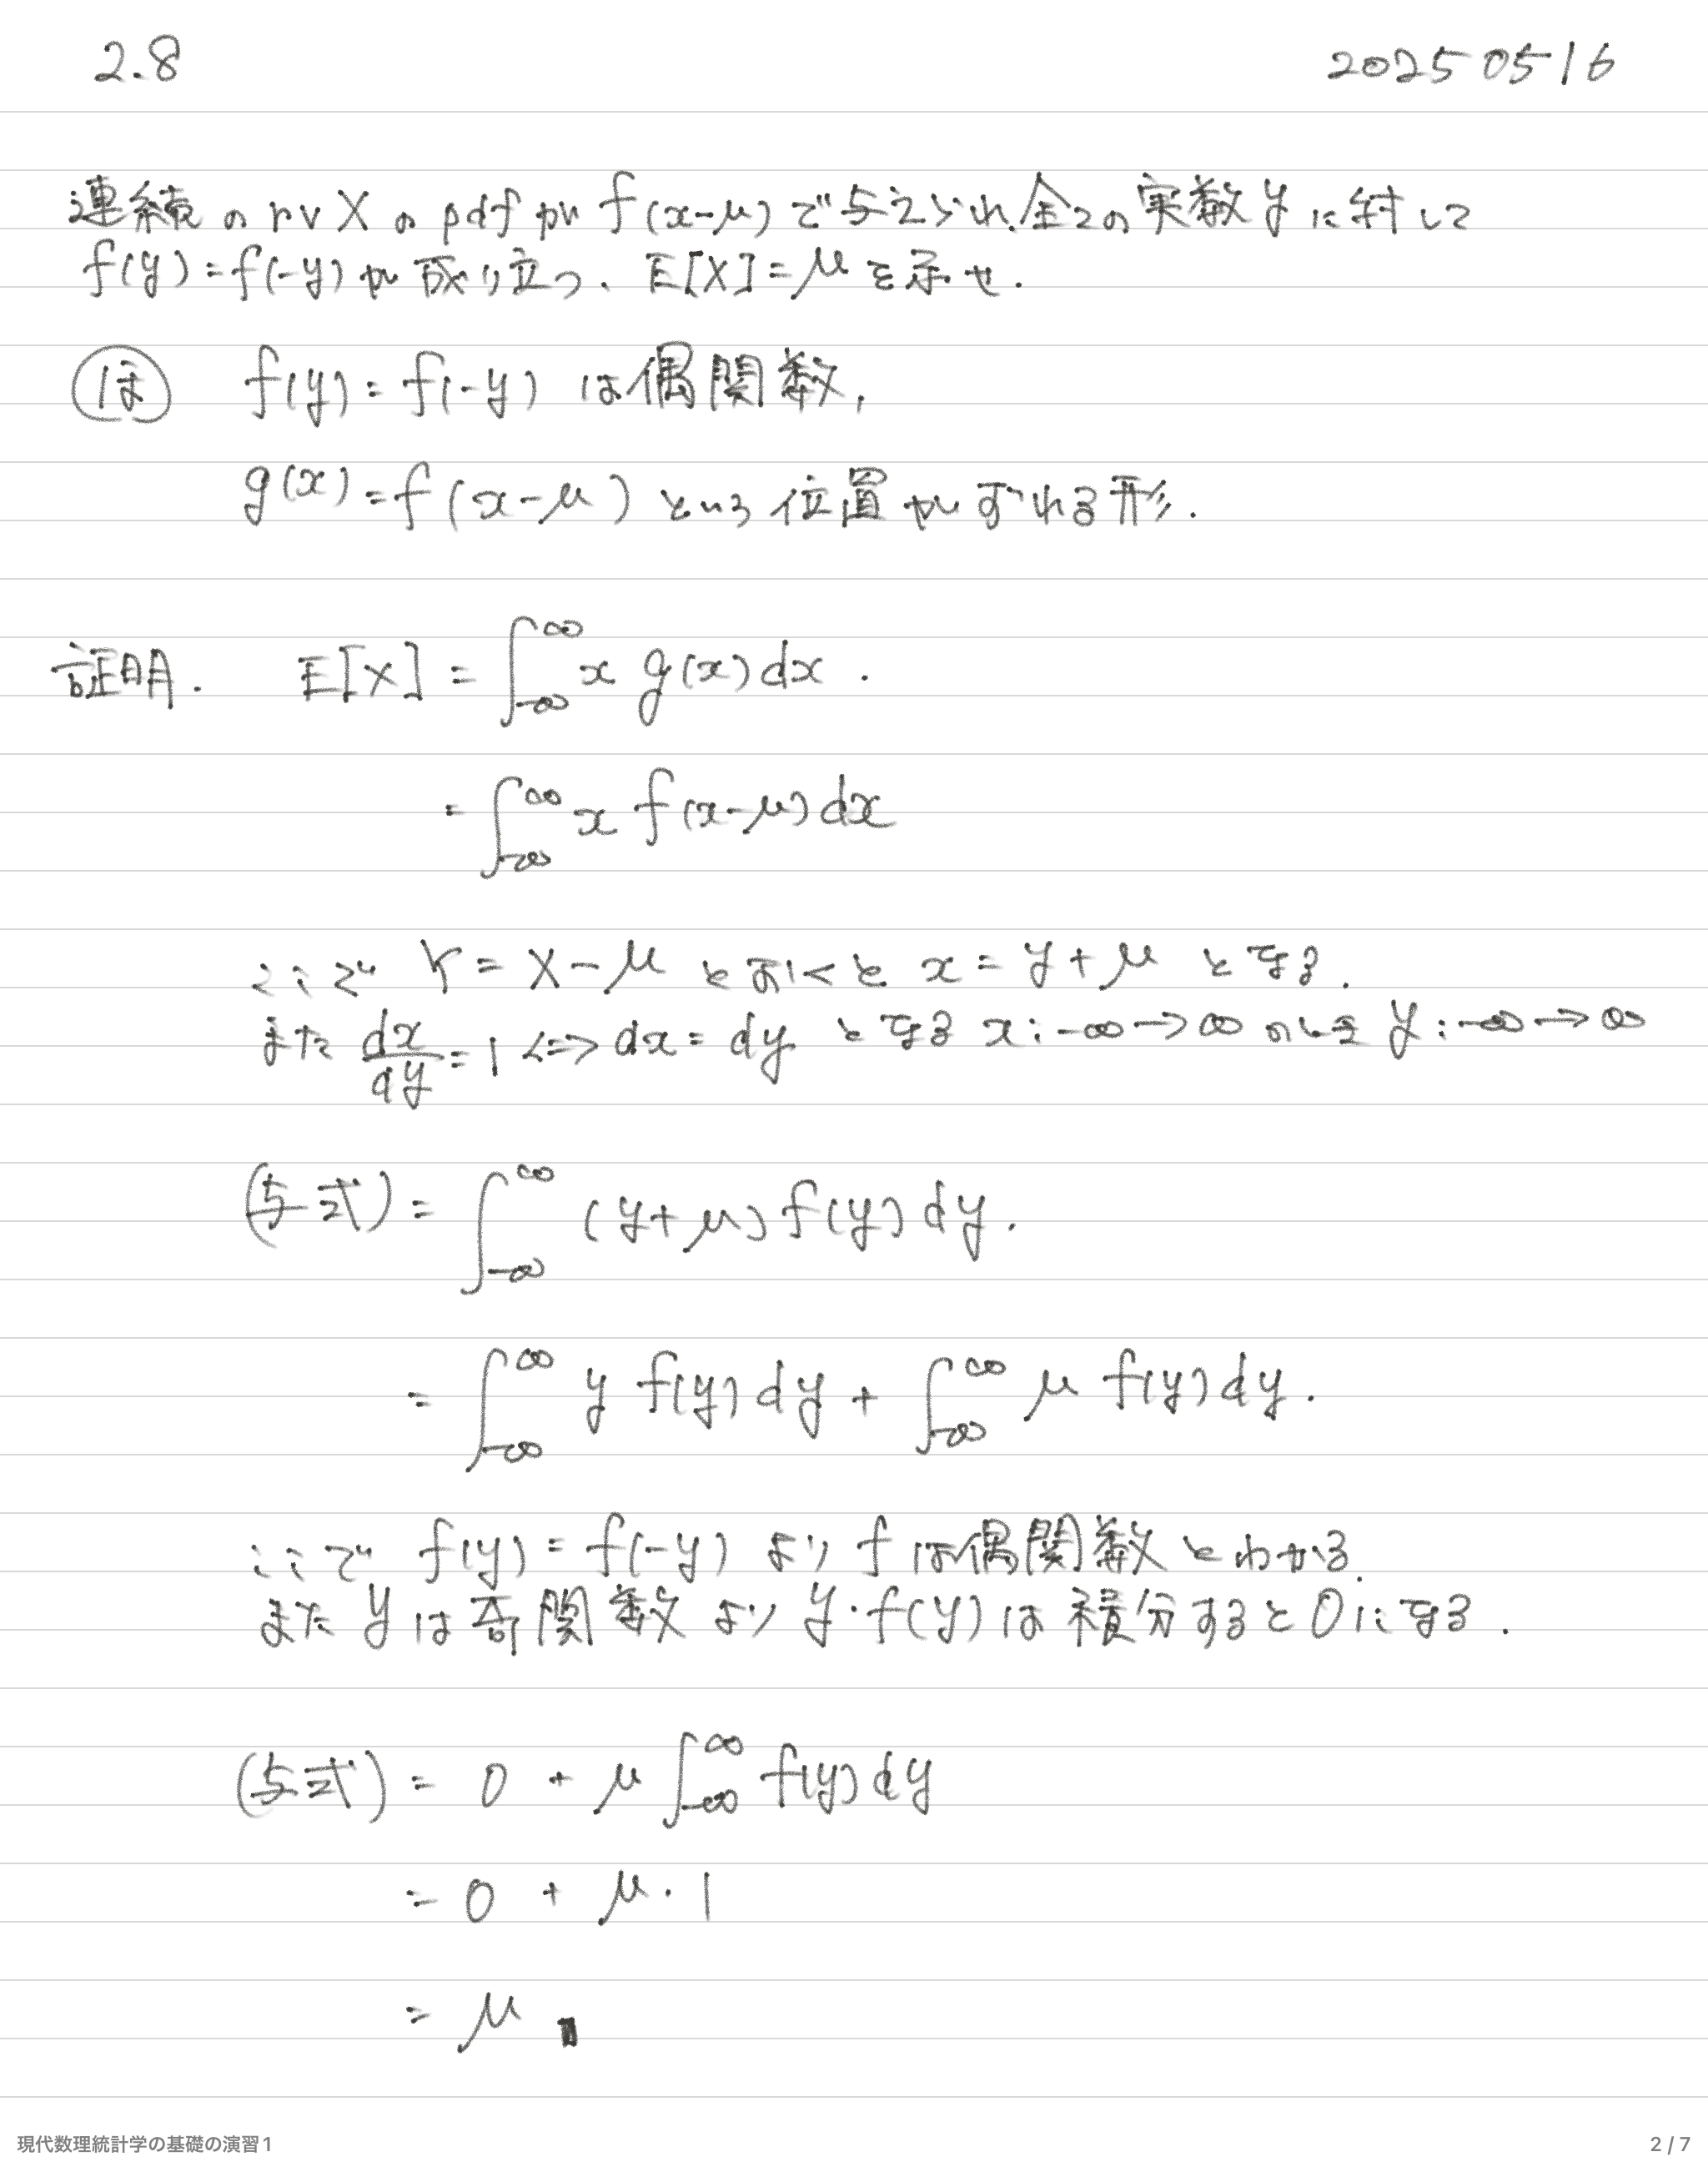 2.8
20250516
連続のrv Xのpdfがf(x-μ)で与えられ全ての実数yに対して
f(y)=f(-y)が成り立つ、E[X]=μを示せ.
ほ f(y)=f(-y)は偶関数,
g(x)=f(x-μ)という位置がずれる形.
証明. E[X] = ∫_{-∞}^{∞} x g(x)dx.
= ∫_{-∞}^{∞} x f(x-μ)dx
ここで Y=X-μ とおくと x=y+μ となる.
また dx/dy=1 <=> dx=dy となる x:-∞→∞ のとき y:-∞→∞
(与式) = ∫_{-∞}^{∞} (y+μ)f(y)dy.
= ∫_{-∞}^{∞} y f(y)dy + ∫_{-∞}^{∞} μ f(y)dy.
ここで f(y)=f(-y) より fは偶関数とわかる.
また yは奇関数より y・f(y)は積分すると0になる.
(与式) = 0 + μ∫_{-∞}^{∞} f(y)dy
= 0 + μ・1
= μ
現代数理統計学の基礎の演習1
2 / 7